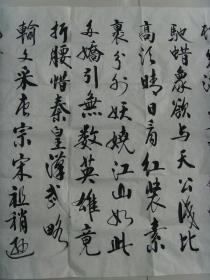 馳蜡象欲与天公试比
高须晴日看红装素
裹分外妖娆江山如此
多嬌引無数英雄竞
折腰惜秦皇漢武略
輸文采唐宗宋祖稍逊